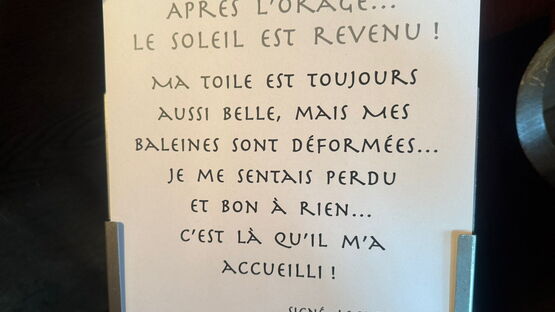 APRÈS L'ORAGE...
LE SOLEIL EST REVENU !
MA TOILE EST TOUJOURS
AUSSI BELLE, MAIS MES
BALEINES SONT DÉFORMÉES...
JE ME SENTAIS PERDU
ET BON À RIEN...
C'EST LÀ QU'IL M'A
ACCUEILLI !
SIGNÉ